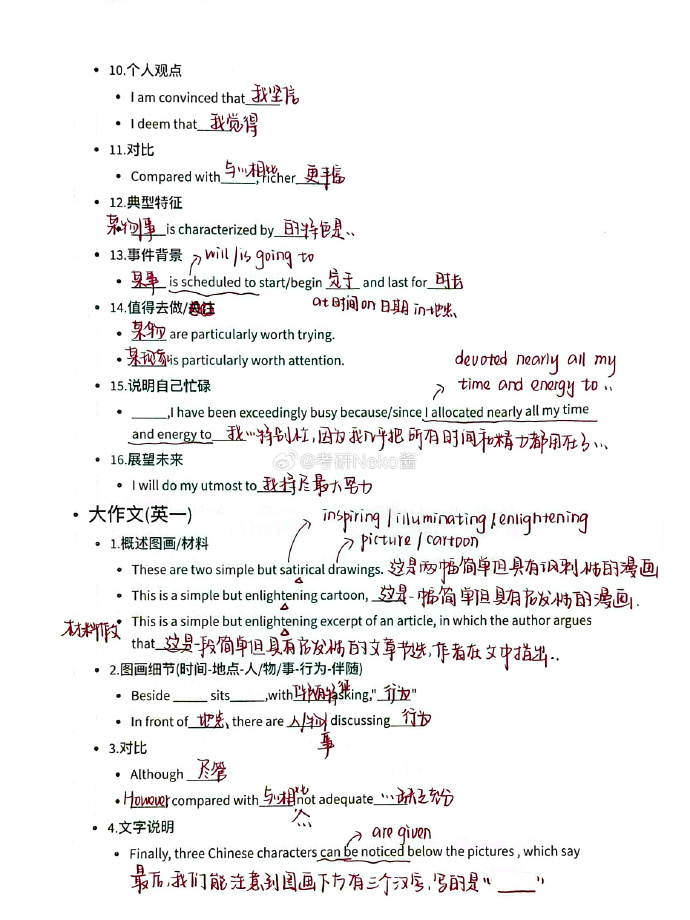 10.个人观点
I am convinced that 我坚信
I deem that 我觉得
11.对比
Compared with 与…相比, richer 更丰富
12.典型特征
某物/事 is characterized by 的特色是..
13.事件背景 will/is going to
某事 is scheduled to start/begin 定于 and last for 时长
14.值得去做/ at时间 on日期 in地点
某物 are particularly worth trying.
某现象 is particularly worth attention. devoted nearly all my
15.说明自己忙碌 time and energy to ..
_____,I have been exceedingly busy because/since I allocated nearly all my time
and energy to 我…特别忙,因为我几乎把所有时间和精力都用在了…
16.展望未来 @考研Neko酱
I will do my utmost to 我将尽最大努力
大作文(英一) inspiring/illuminating/enlightening
1.概述图画/材料 picture/cartoon
These are two simple but satirical drawings. 这是两幅简单但具有讽刺性的漫画
This is a simple but enlightening cartoon, 这是一幅简单但具有启发性的漫画.
材料作文 This is a simple but enlightening excerpt of an article, in which the author argues
that 这是一段简单但具有启发性的文章节选,作者在文中指出..
2.图画细节(时间-地点-人/物/事-行为-伴随)
Beside _____ sits_____,with asking," 行为"
In front of 地点, there are 人/物/ discussing 行为
事
3.对比
Although 尽管
However compared with 与…相比 not adequate …缺乏充分
4.文字说明 are given
Finally, three Chinese characters can be noticed below the pictures , which say
最后,我们能注意到图画下方有三个汉字,写的是"____"